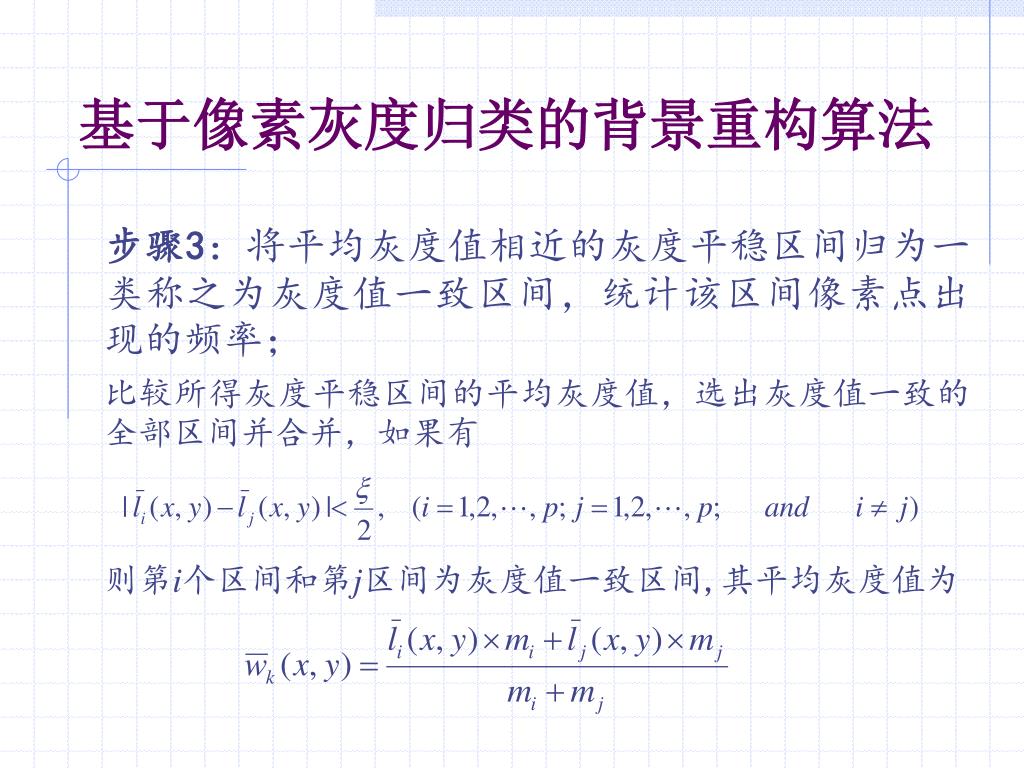 基于像素灰度归类的背景重构算法
步骤3：将平均灰度值相近的灰度平稳区间归为一
类称之为灰度值一致区间，统计该区间像素点出
现的频率；
比较所得灰度平稳区间的平均灰度值，选出灰度值一致的
全部区间并合并，如果有
$|\bar{l}_i(x,y)-\bar{l}_j(x,y)|<\frac{\xi}{2},\quad (i=1,2,\cdots,p;j=1,2,\cdots,p;\quad and\quad i\neq j)$
则第i个区间和第j区间为灰度值一致区间,其平均灰度值为
$\overline{w}_k(x,y)=\frac{\bar{l}_i(x,y)\times m_i+\bar{l}_j(x,y)\times m_j}{m_i+m_j}$